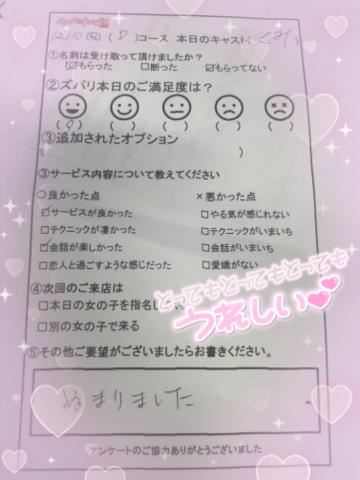 12/10(日)( D )コース 本日のキャスト( くみ )
①名刺は受け取って頂けましたか?
☑もらった □断った ☑もらってない
②ズバリ本日のご満足度は?
( O ) ( ) ( ) ( ) ( )
③追加されたオプション
( )
③サービス内容について教えてください
○良かった点 ×悪かった点
☑サービスが良かった □やる気が感じれない
□テクニックが凄かった □テクニックがいまいち
☑会話が楽しかった □会話がいまいち
□恋人と過ごすような感じだった □愛嬌がない
④次回のご来店は
□本日の女の子を指名し
□別の女の子で来る
とってもとってもとっても
うれしい
⑤その他ご要望がございましたらお書きください。
ぬまりました
アンケートのご協力ありがとうございました